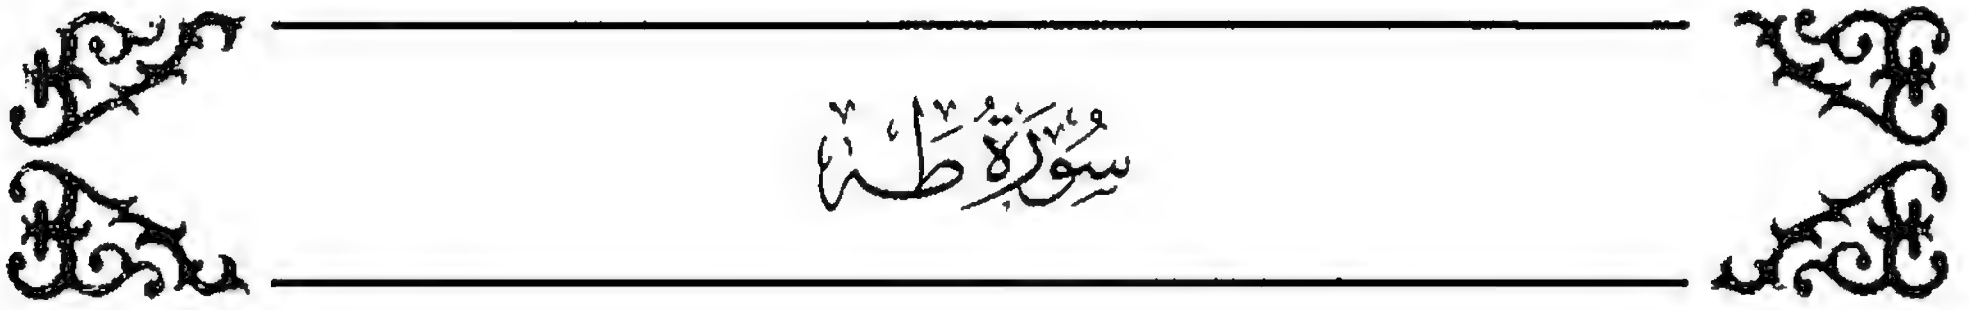 سُورَةُ طه